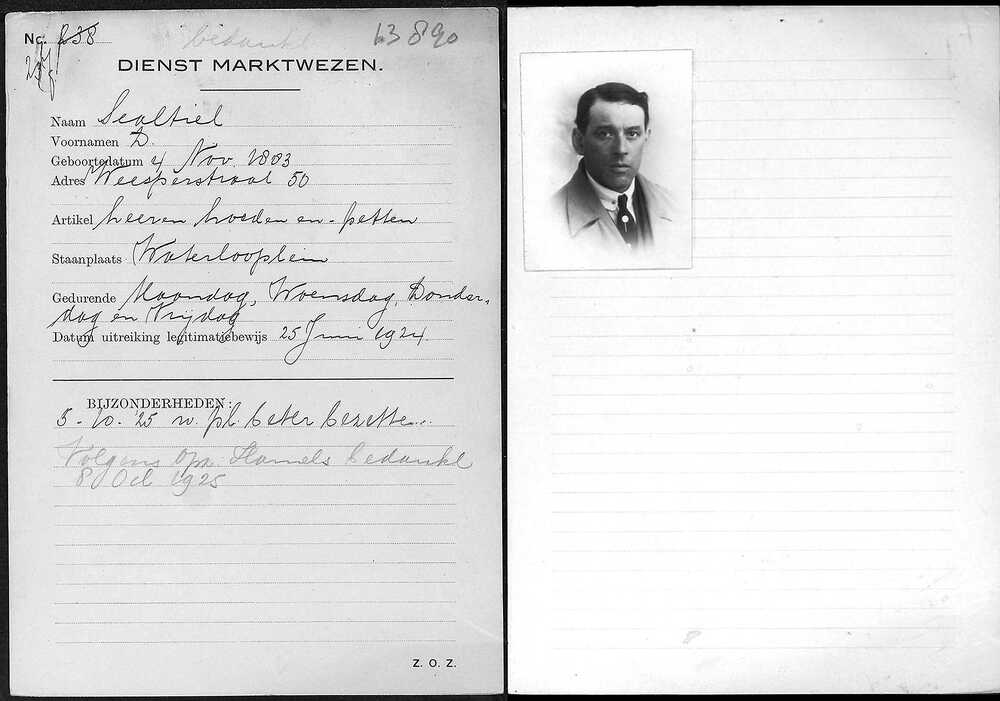 No. 238
bedankt
63890
DIENST MARKTWEZEN.
Naam Sealtiel
Voornamen D.
Geboortedatum 4 Nov. 1883
Adres Weesperstraat 50
Artikel heeren hoeden en-petten
Staanplaats Waterlooplein
Gedurende Maandag, Woensdag, Donder-
dag en Vrijdag
Datum uitreiking legitimatiebewijs 25 Juni 1924.
BIJZONDERHEDEN:
5-10-'25 w. pl. beter bezette..
Volgens Opz. Hamels bedankt
8 Oct 1925
Z. O. Z.